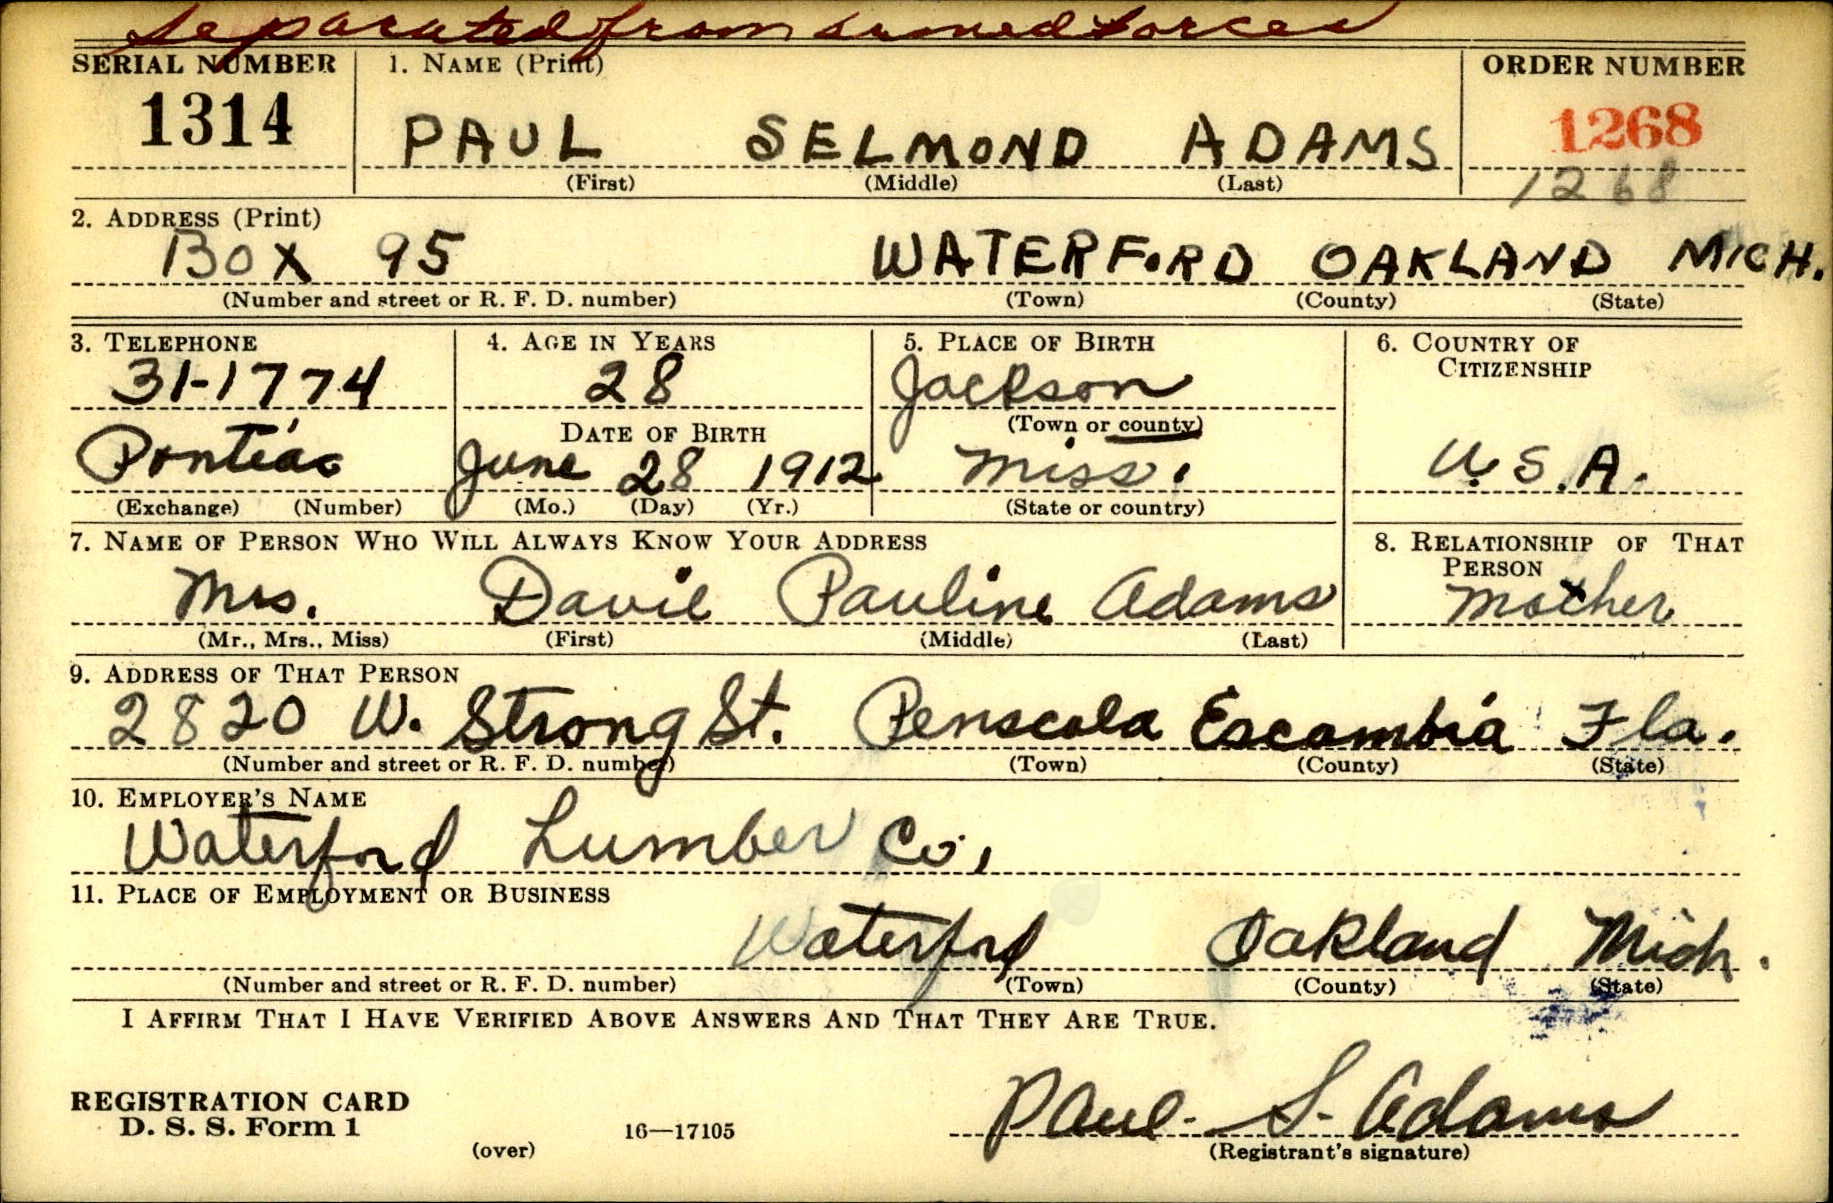 Separated from armed forces
SERIAL NUMBER 1. NAME (Print) ORDER NUMBER
1314 PAUL SELMOND ADAMS 1268
(First) (Middle) (Last) 1268
2. ADDRESS (Print)
BOX 95 WATERFORD OAKLAND MICH.
(Number and street or R. F. D. number) (Town) (County) (State)
3. TELEPHONE 4. AGE IN YEARS 5. PLACE OF BIRTH 6. COUNTRY OF
CITIZENSHIP
31-1774 28 Jackson
(Town or county)
DATE OF BIRTH
Pontiac June 28 1912 Miss. U.S.A.
(Exchange) (Number) (Mo.) (Day) (Yr.) (State or country)
7. NAME OF PERSON WHO WILL ALWAYS KNOW YOUR ADDRESS 8. RELATIONSHIP OF THAT
PERSON
Mrs. Davie Pauline Adams Mother
(Mr., Mrs., Miss) (First) (Middle) (Last)
9. ADDRESS OF THAT PERSON
2820 W. Strong St. Penscola Escambia Fla.
(Number and street or R. F. D. number) (Town) (County) (State)
10. EMPLOYER'S NAME
Waterford Lumber Co.
11. PLACE OF EMPLOYMENT OR BUSINESS
Waterford Oakland Mich.
(Number and street or R. F. D. number) (Town) (County) (State)
I AFFIRM THAT I HAVE VERIFIED ABOVE ANSWERS AND THAT THEY ARE TRUE.
REGISTRATION CARD
D. S. S. Form 1 Paul S. Adams
(over) 16—17105 (Registrant's signature)